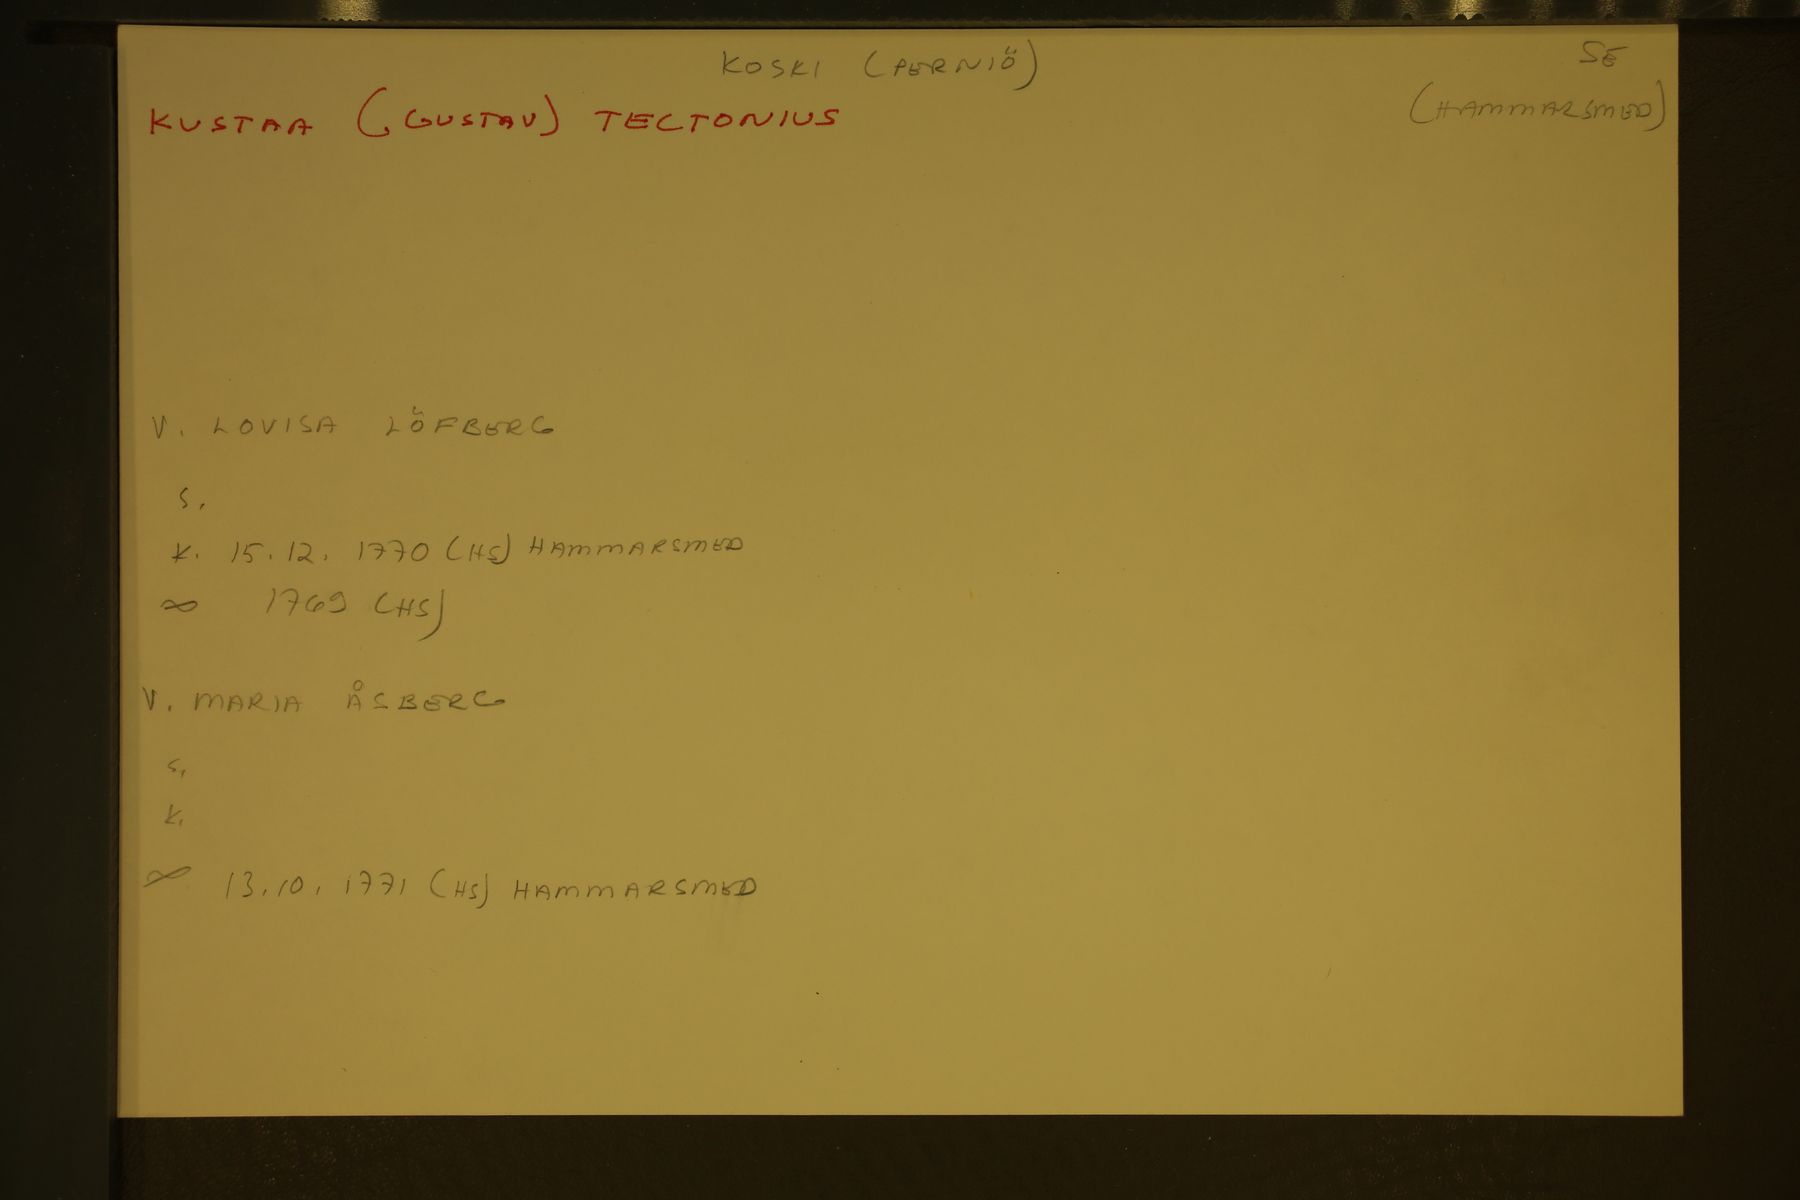 KOSKI (PERNIÖ)
SE
(HAMMARSMED)
KUSTAA (GUSTAV) TECTONIUS
V. LOVISA LÖFBERG
S.
K. 15.12. 1770 (HS) HAMMARSMED
∞ 1769 (HS)
V. MARIA ÅSBERG
S.
K.
∞ 13.10. 1771 (HS) HAMMARSMED